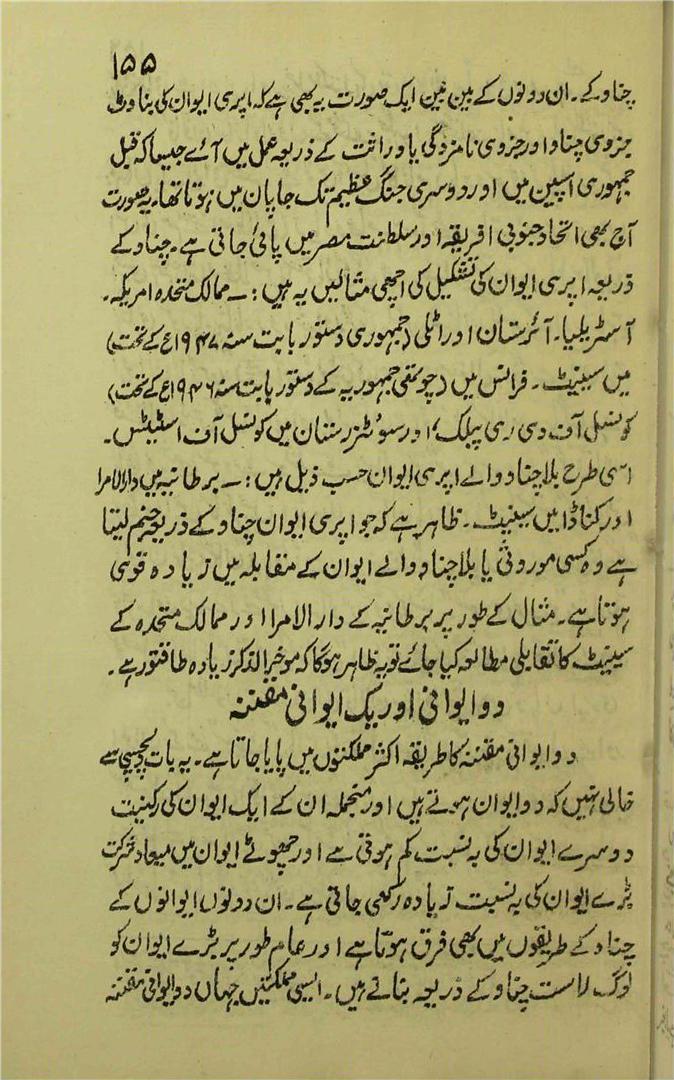 ۱۵۵
چناو کے۔ ان دونوں کے بین بین ایک صورت یہ بھی ہے کہ اپری ایوان کی بناوٹ
جزوی چناو اور جزوی نامزدگی یا وراثت کے ذریعہ عمل میں آئے جیسا کہ قبل
جمہوری اسپین میں اور دوسری جنگ عظیم تک جاپان میں ہوتا تھا۔ یہ صورت
آج بھی اتحاد جنوبی افریقہ اور سلطانت مصر میں پائی جاتی ہے۔ چناو کے
ذریعہ اپری ایوان کی تشکیل کی اچھی مثالیں یہ ہیں :۔ ممالک متحدہ امریکہ۔
آسٹریلیا۔ آئرستان اور اٹلی (جمہوری دستور بابت سنہ ۱۹۴۷ع کے تحت)
میں سینیٹ۔ فرانس میں (چوتھی جمہوریہ کے دستور بابت سنہ ۱۹۴۶ع کے تحت)
کونسل آف دی ری پبلک، اور سوئٹزرستان میں کونسل آف اسٹیٹس۔
اسی طرح بلا چناو والے اپری ایوان حسب ذیل ہیں :۔ برطانیہ میں دارالامرا
اور کناڈا میں سینیٹ۔ ظاہر ہے کہ جو اپری ایوان چناو کے ذریعہ جنم لیتا
ہے وہ کسی موروثی یا بلا چناو والے ایوان کے مقابلہ میں زیادہ قوی
ہوتا ہے۔ مثال کے طور پر برطانیہ کے دارالامرا اور ممالک متحدہ کے
سینیٹ کا تقابلی مطالعہ کیا جائے تو یہ ظاہر ہوگا کہ موخرالذکر زیادہ طاقتور ہے۔
دو ایوانی اور یک ایوانی مقننہ
دو ایوانی مقننہ کا طریقہ اکثر مملکتوں میں پایا جاتا ہے۔ یہ بات دلچسپی سے
خالی نہیں کہ دو ایوان ہوتے ہیں اور منجملہ ان کے ایک ایوان کی رکنیت
دوسرے ایوان کی بہ نسبت کم ہوتی ہے اور چھوٹے ایوان میں میعاد شرکت
بڑے ایوان کی بہ نسبت زیادہ رکھی جاتی ہے۔ ان دونوں ایوانوں کے
چناو کے طریقوں میں بھی فرق ہوتا ہے اور عام طور پر بڑے ایوان کو
لوگ راست چناو کے ذریعہ بناتے ہیں۔ ایسی مملکتیں جہاں دو ایوانی مقننہ